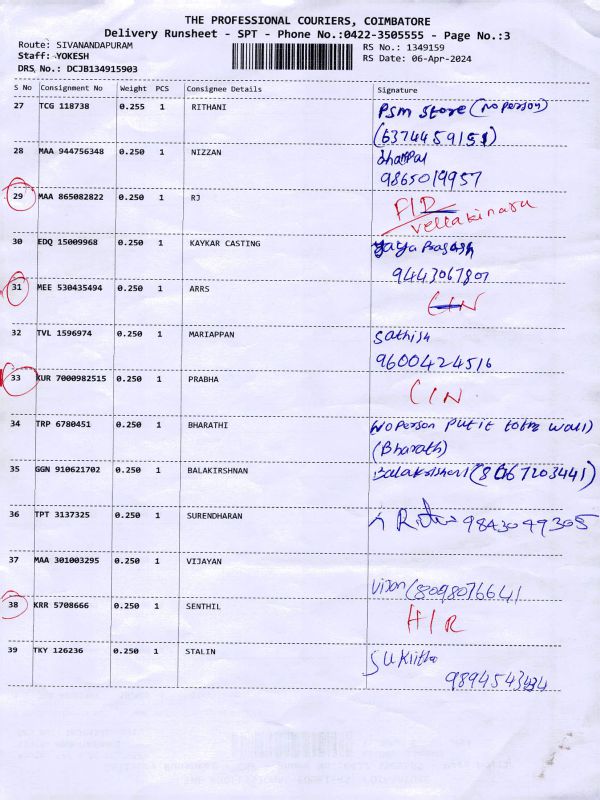 THE PROFESSIONAL COURIERS, COIMBATORE
Delivery Runsheet - SPT - Phone No.:0422-3505555 - Page No.:3
Route: SIVANANDAPURAM
RS No.: 1349159
Staff: YOKESH
RS Date: 06-Apr-2024
DRS No.: DCJB134915903
S No Consignment No Weight PCS Consignee Details Signature
27 TCG 118738 0.255 1 RITHANI PSM Store (No person)
(6374459151)
28 MAA 944756348 0.250 1 NIZZAN
9865019957
29 MAA 865082822 0.250 1 RJ
Vellakinaru
30 EDQ 15009968 0.250 1 KAYKAR CASTING
9443067807
31 MEE 530435494 0.250 1 ARRS CIN
32 TVL 1596974 0.250 1 MARIAPPAN Sathish
9600424516
33 KUR 7000982515 0.250 1 PRABHA CIN
34 TRP 6780451 0.250 1 BHARATHI No person put it
(Bharath)
35 GGN 910621702 0.250 1 BALAKIRSHNAN
36 TPT 3137325 0.250 1 SURENDHARAN 9843049305
37 MAA 301003295 0.250 1 VIJAYAN
(8098076641
38 KRR 5708666 0.250 1 SENTHIL HIR
39 TKY 126236 0.250 1 STALIN